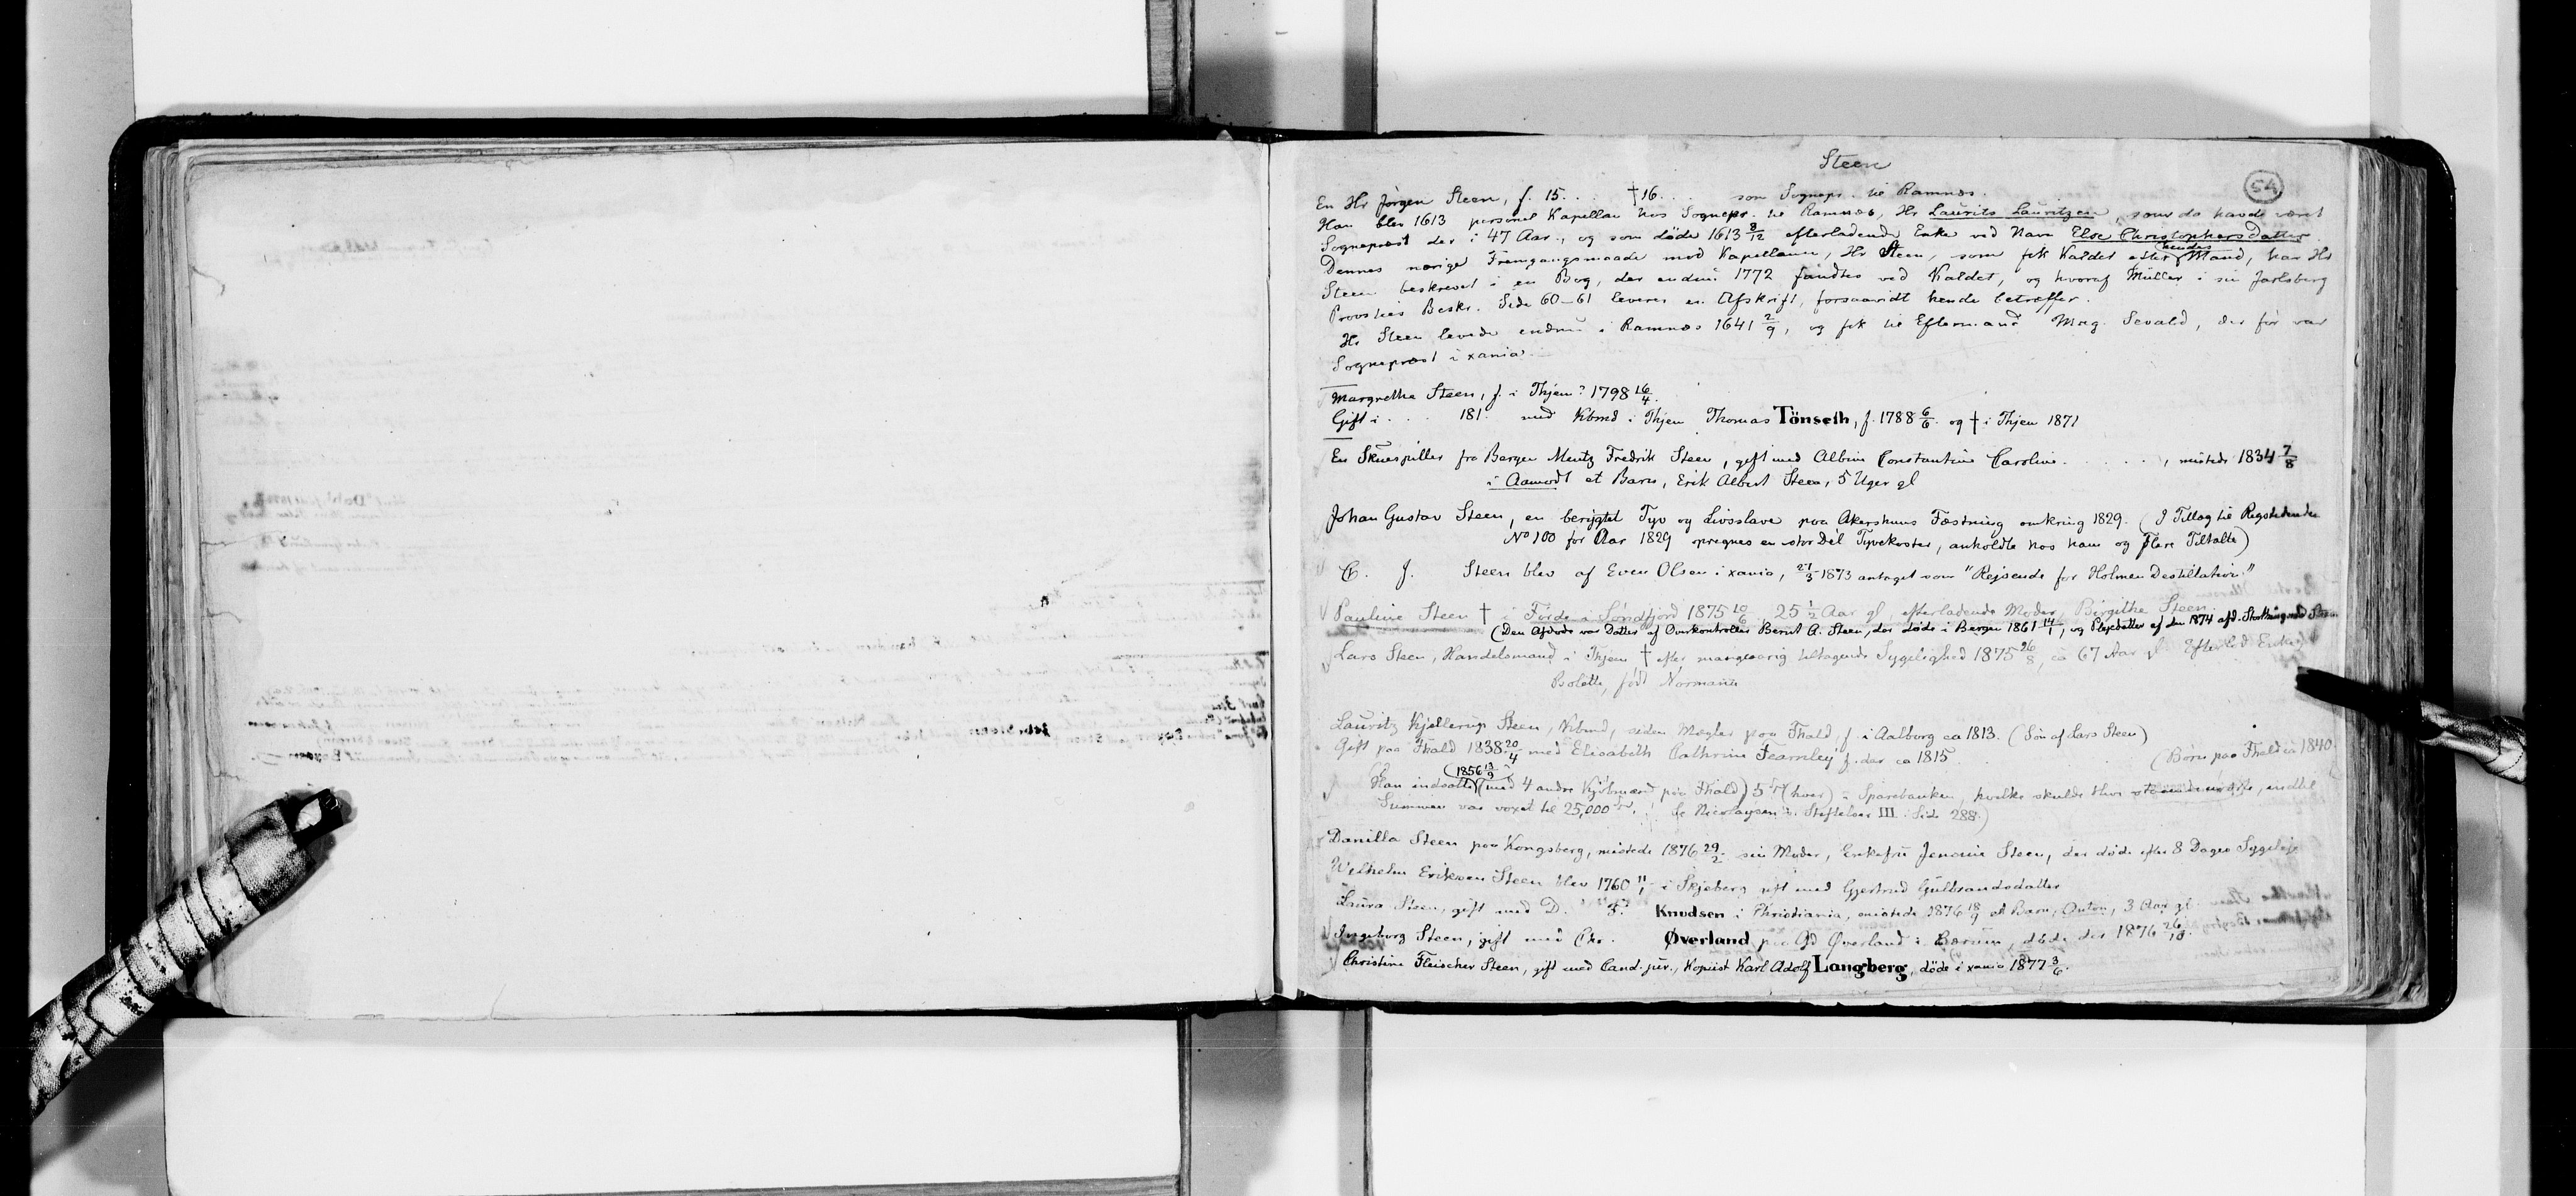 Steen
54
En Hr Jørgen Steen, f. 15 . . †16 . . som Sognepr. til Ramnæs.
Han blev 1613 personel Kapellan hos Sognepr. til Ramnæs, Hr Laurits Lauritzen, som da havde været
Sognepræst der i 47 Aar, og som døde 1613 8/12 efterladende Enke ved Navn Else ChristophersDatter.
Dennes nærige Fremgangsmaade mod Kapellanen, Hr Steen, som fik Kaldet efter hendes Mand, har Hr
Steen beskrevet i en Bog, der endnu 1772 fandtes ved Kaldet, og hvoraf Müller i sin Jarlsberg
Provsties Beskr. Side 60-61 leverer en Afskrift, forsaavidt hende betræffer.
Hr Steen levede endnu i Ramnæs 1641 2/9, og fik til Eftermand Mag. Sevald, der før var
Sognepræst i xania.
Margrethe Steen, f. i Thjem? 1798 16/4.
Gift i . . . 181. med Kbmd i Thjem Thomas Tönseth, f. 1788 6/6. og † i Thjem 1871
En Skuespiller fra Bergen Mentz Fredrik Steen, gift med Albine Constantine Caroline . . . . . , mistede 1834 7/8
i Aamodt et Barn, Erik Albert Steen, 5 Uger gl
Johan Gustav Steen, en berygtet Tyv og Livsslave paa Akershuus Fæstning omkring 1829. (I Tillæg til Rigstidende
No 100 for Aar 1829 opregnes en stor Del Tyvekoster, anholdte hos ham og flere Tiltalte)
C. J. Steen blev af Even Olsen i xania, 27/3 1873 antaget som "Rejsende for Holmen Destillation."
Pauline Steen † i Førde i Søndfjord 1875 10/6 25 1/2 Aar gl, efterladende Moder, Birgithe Steen.
(Den Afdøde var Datter af Overkontrollør Bernt A. Steen, der døde i Bergen 1861 14/1, og Plejedatter af den 1874 afd. Stortingsmd Steen
Lars Steen, Handelsmand i Thjem, † efter mangeaarig tiltagende Sygelighed 1875 26/8, ca 67 Aar gl. Efterlod Enke,
Bolette, født Normann
Lauritz Kjellerup Steen, Kbmd, siden Mægler paa Fhald, f. i Aalborg ca 1813. (Søn af Lars Steen)
Gift paa Fhald 1838 20/4 med Elisabeth Cathrine Fearnley f. der ca 1815. (Børn paa Fhald ca 1840.
Han indsatte 1856 13/9 (med 4 andre Kjöbmænd paa Fhald) 5 (hver) i Sparebanken, hvilke skulde blive staaende urørte, indtil
Summen var voxet til 25,000. (Se Nicolaysens Stiftelser III. Side 288.)
Danilla Steen paa Kongsberg, mistede 1876 29/2 sin Moder, Enkefru Jensine Steen, der døde efter 8 Dages Sygeleje
Wilhelm Eriksen Steen blev 1760 11/1 i Skjeberg gift med Gjertrud Gulbrandsdatter
Laura Steen, gift med D. F. Knudsen i Christiania, mistede 1876 18/9 et Barn, Anton, 3 Aar gl.
Ingeborg Steen, gift med Chr. Øverland paa Gd Øverland i Bærum, døde der 1876 26/10.
Christine Fleischer Steen, gift med Cand. jur., Kopiist Karl Adolf Langberg, døde i xania 1877 3/6.